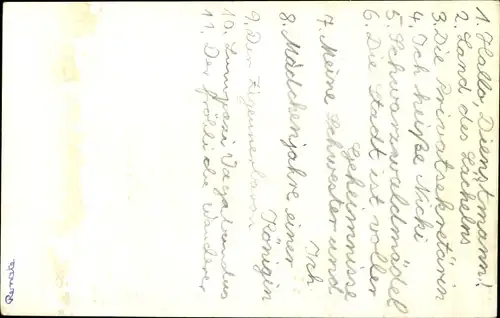 1. Hallo, Dienstmann!
2. Land des Lächelns
3. Die Privatsekretärin
4. Ich heiße Nicki
5. Schwarzwaldmädel
6. Die Stadt ist voller
Geheimnisse
7. Meine Schwester und
Ich
8. Mädchenjahre einer
Königin
9. Der Zigeunerbaron
10. Lumpazi Vagabundus
11. Der fröhliche Wanderer
Renate